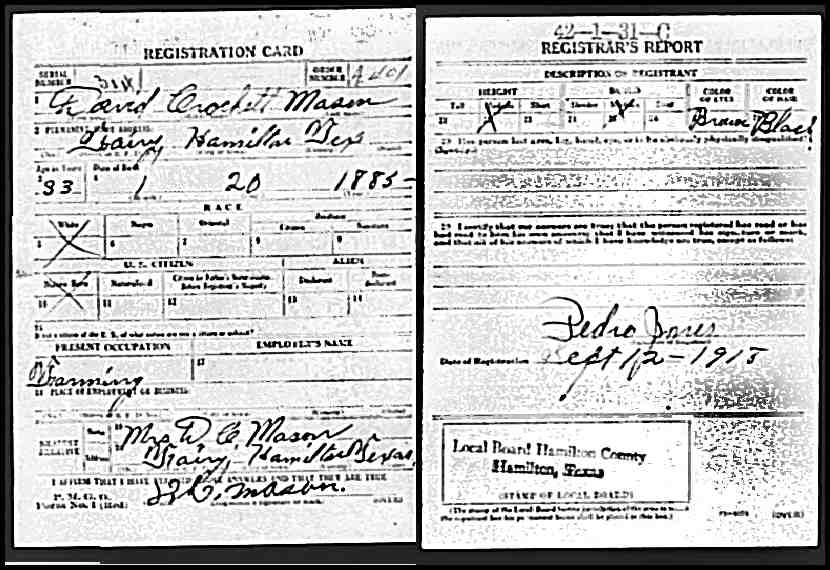 REGISTRATION CARD
SERIAL NUMBER 311 ORDER NUMBER
1 David Crockett Mason
2 PERMANENT HOME ADDRESS:
Fairy Hamilton Tex
Age in Years Date of Birth
33 1 20 1885
RACE
White Negro Oriental Indian
Citizen Noncitizen
5 6 7 8 9
U. S. CITIZEN ALIEN
Native Born Naturalized Citizen by Father's Naturalization Before Registrant's Majority Declarant Non-declarant
10 11 12 13 14
15
If not a citizen of the U. S., of what nation are you a citizen or subject?
PRESENT OCCUPATION EMPLOYER'S NAME
Farming 17
18 PLACE OF EMPLOYMENT OR BUSINESS:
NEAREST RELATIVE Name Mrs D. C. Mason
Address Fairy, Hamilton Texas
I AFFIRM THAT I HAVE VERIFIED ABOVE ANSWERS AND THAT THEY ARE TRUE
P. M. G. O.
Form No. 1 (Red) D. C. Mason. (OVER)
42-1-31-C
REGISTRAR'S REPORT
DESCRIPTION OF REGISTRANT
HEIGHT BUILD COLOR OF EYES COLOR OF HAIR
Tall Medium Short Slender Medium Stout
21 23 24 26 Brown Black
29 Has person lost arm, leg, hand, eye, or is he obviously physically disqualified?
(Specify.)
30 I certify that my answers are true; that the person registered has read or has
had read to him his own answers; that I have witnessed his signature or mark,
and that all of his answers of which I have knowledge are true, except as follows:
Pedro Jones
Date of Registration Sept 12-1918
Local Board Hamilton County
Hamilton, Texas
(STAMP OF LOCAL BOARD)
(The stamp of the Local Board having jurisdiction of the area in which
the registrant has his permanent home shall be placed in this box.)
(OVER)